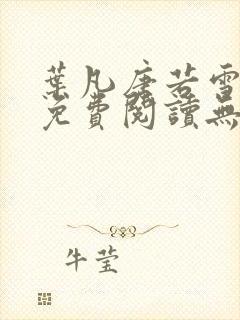 葉凡唐若雪
免費閱讀無
牛莹